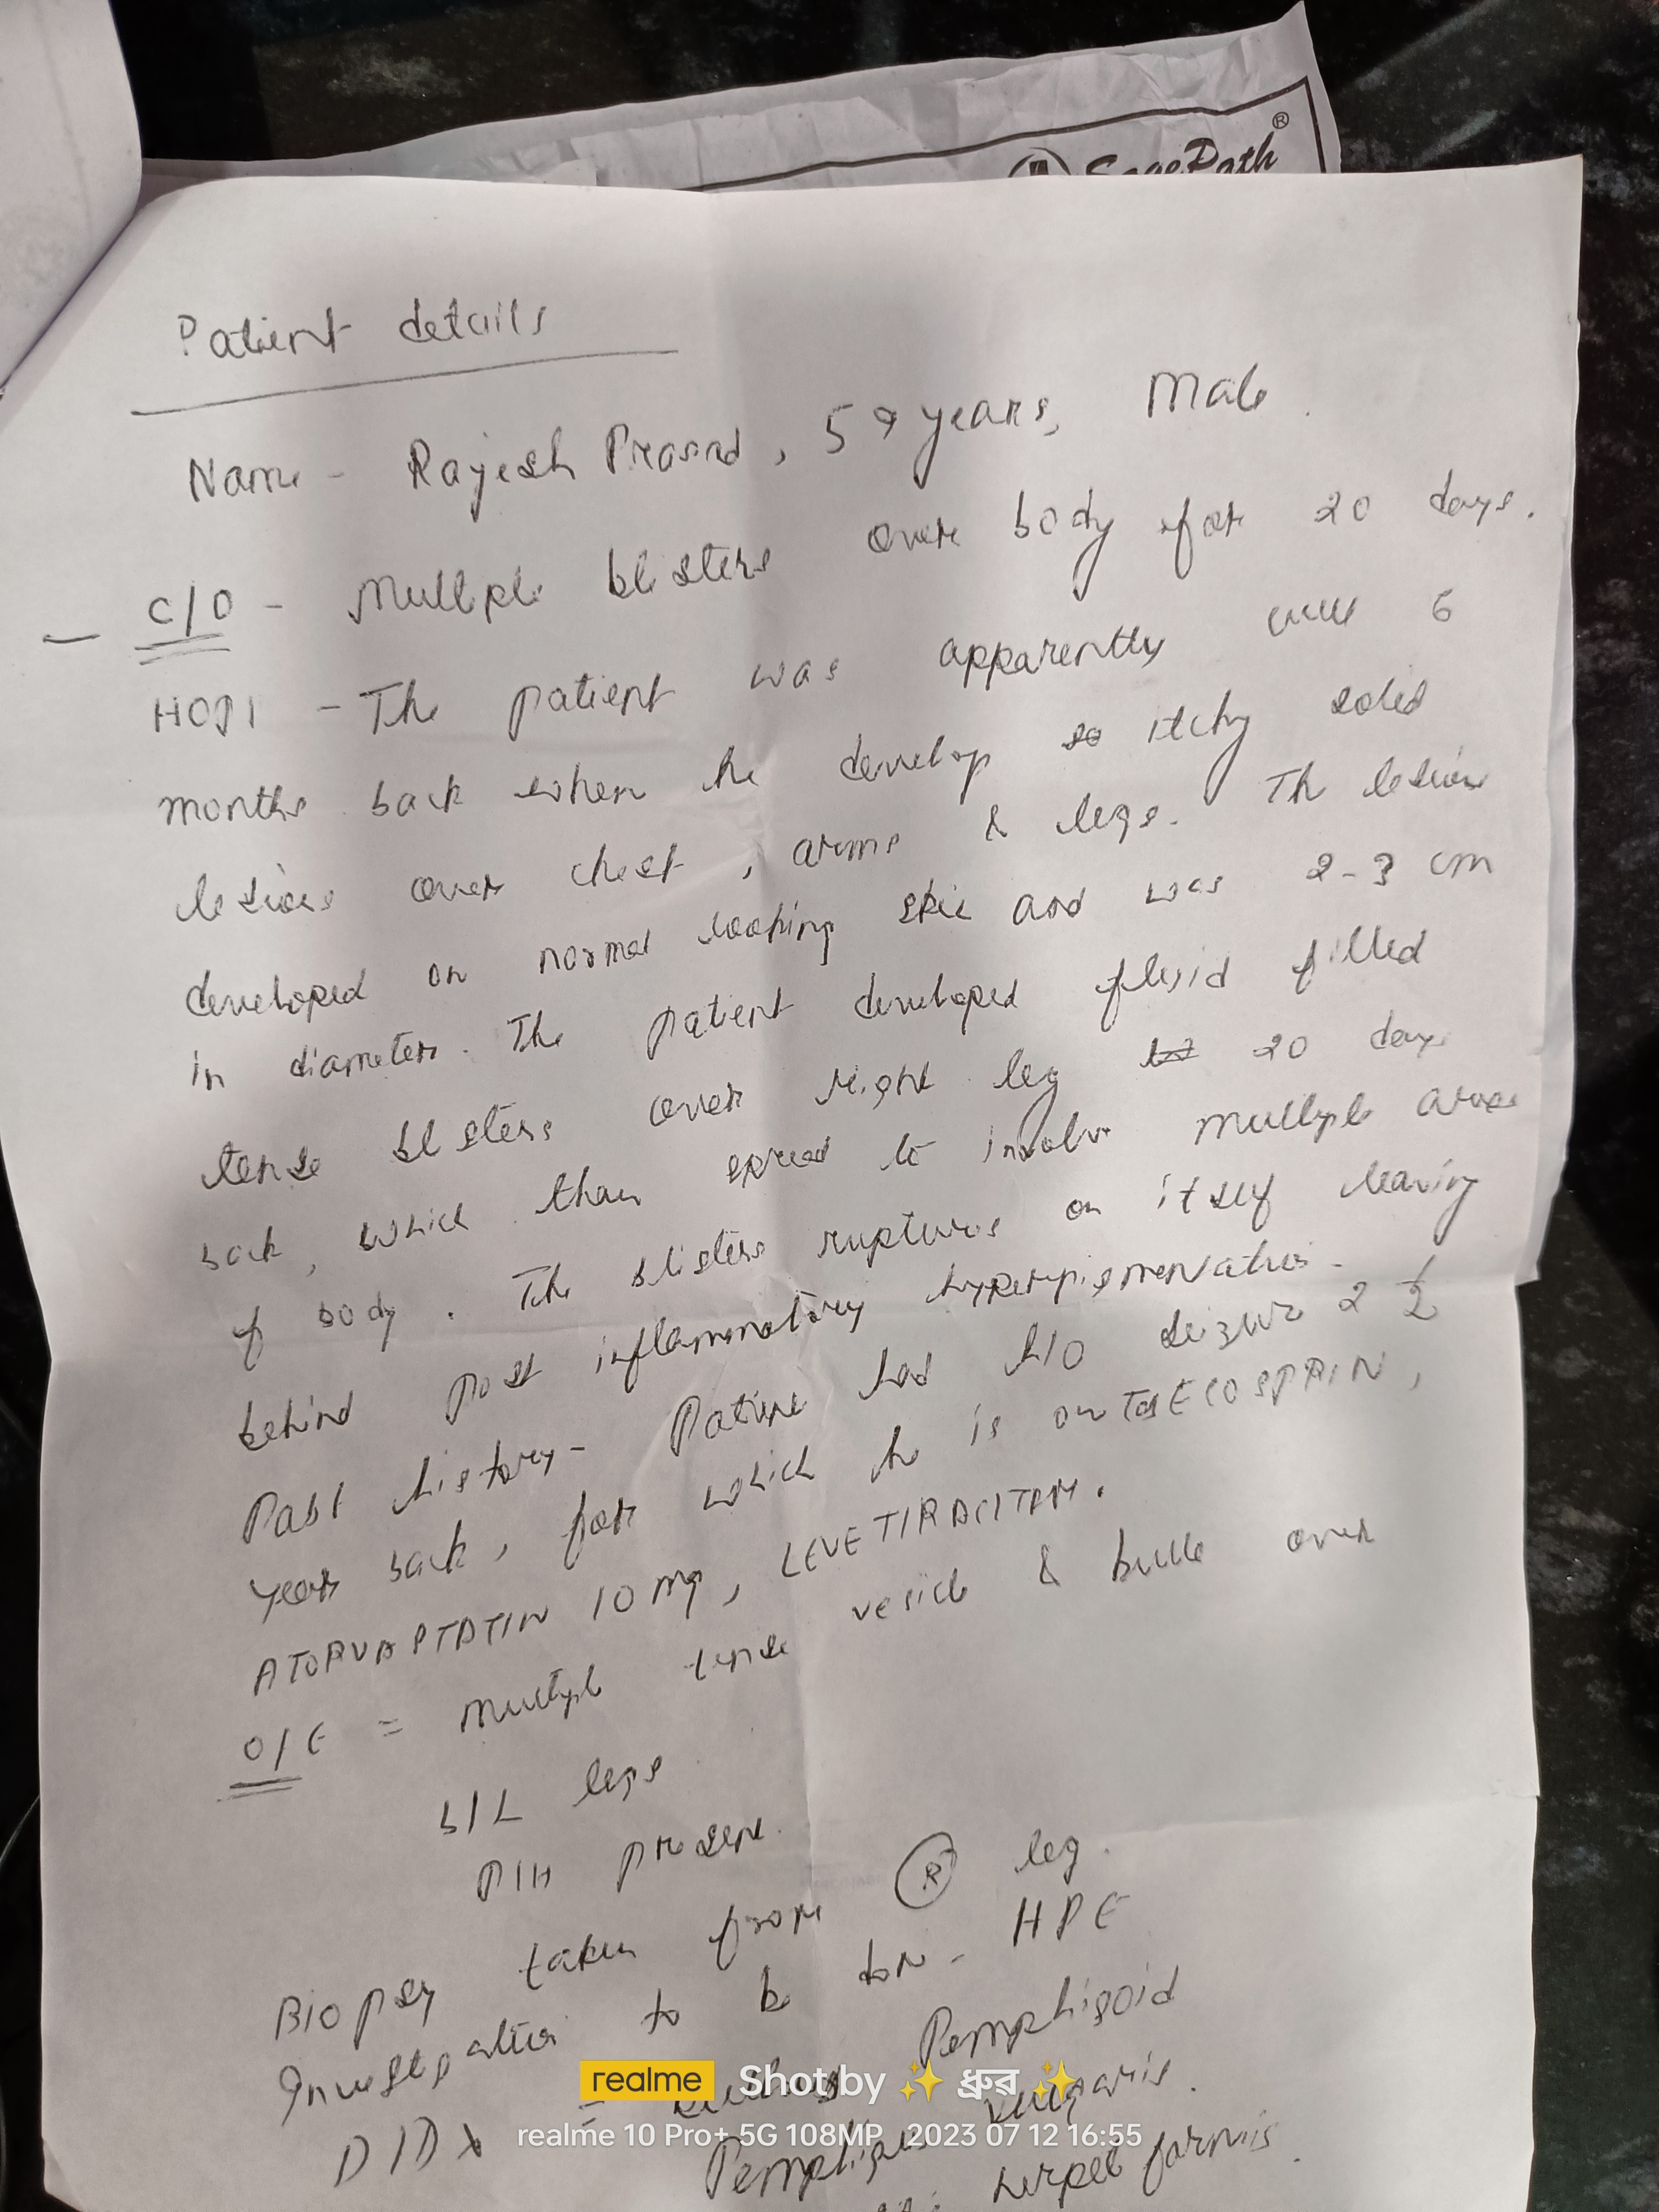 SagePath®
Patient details
Name - Rajesh Prasad, 59 years, Male.
C/O - Multiple blisters over body for 20 days.
HOPI - The patient was apparently well 6
months back when he develop so itchy solid
lesions over chest, arms & legs. The lesions
developed on normal looking skin and was 2-3 cm
in diameter. The patient developed fluid filled
tense blisters over right leg 20 days
back, which then spread to involve multiple areas
of body. The blisters ruptures on itself leaving
behind post inflammatory hyperpigmentation.
Past history - Patient had h/o seizure 2 1/2
years back, for which he is on Tab ECOSPRIN,
ATORVASTATIN 10 mg, LEVETIRACITAM.
O/E = multiple tense vesicle & bulla over
b/L legs
PIH present.
Biopsy taken from R leg.
Investigation to be done - HPE
D/Dx = Bullous Pemphigoid
Pemphigus vulgaris.
herpetiformis.
realme Shot by ✨ ধ্রুব ✨
realme 10 Pro+ 5G 108MP 2023 07 12 16:55